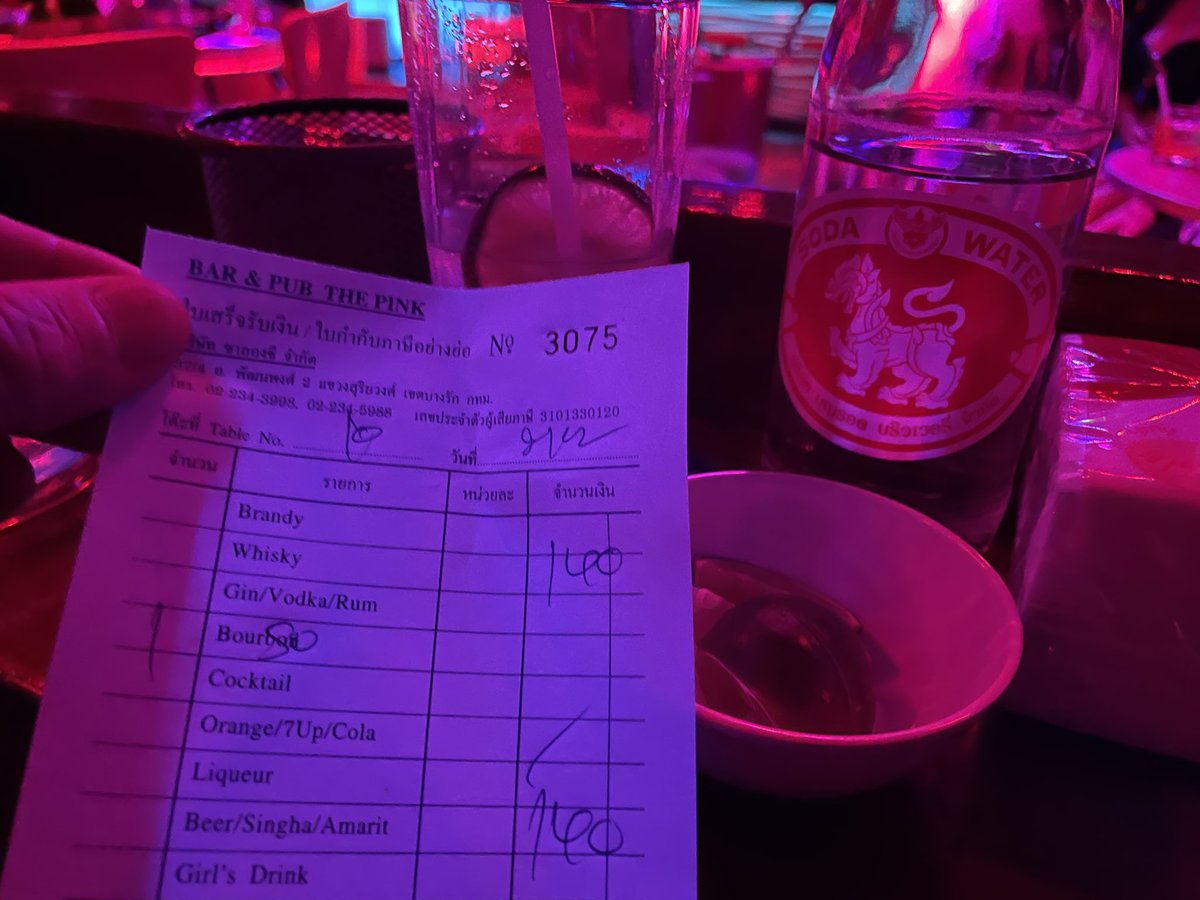 BAR & PUB THE PINK
ใบเสร็จรับเงิน / ใบกำกับภาษีอย่างย่อ Nº 3075
บริษัท ชาลองซี จำกัด
ถ. พัฒนพงศ์ 2 แขวงสุริยวงศ์ เขตบางรัก กทม.
โทร. 02-234-3998, 02-234-5988 เลขประจำตัวผู้เสียภาษี 3101330120
โต๊ะที่ Table No. 10 วันที่
จำนวน รายการ หน่วยละ จำนวนเงิน
Brandy
Whisky 140
Gin/Vodka/Rum
1 Bourbon
Cocktail
Orange/7Up/Cola
Liqueur
Beer/Singha/Amarit 140
Girl's Drink
SODA WATER
บุญรอด บริวเวอรี่ จำกัด